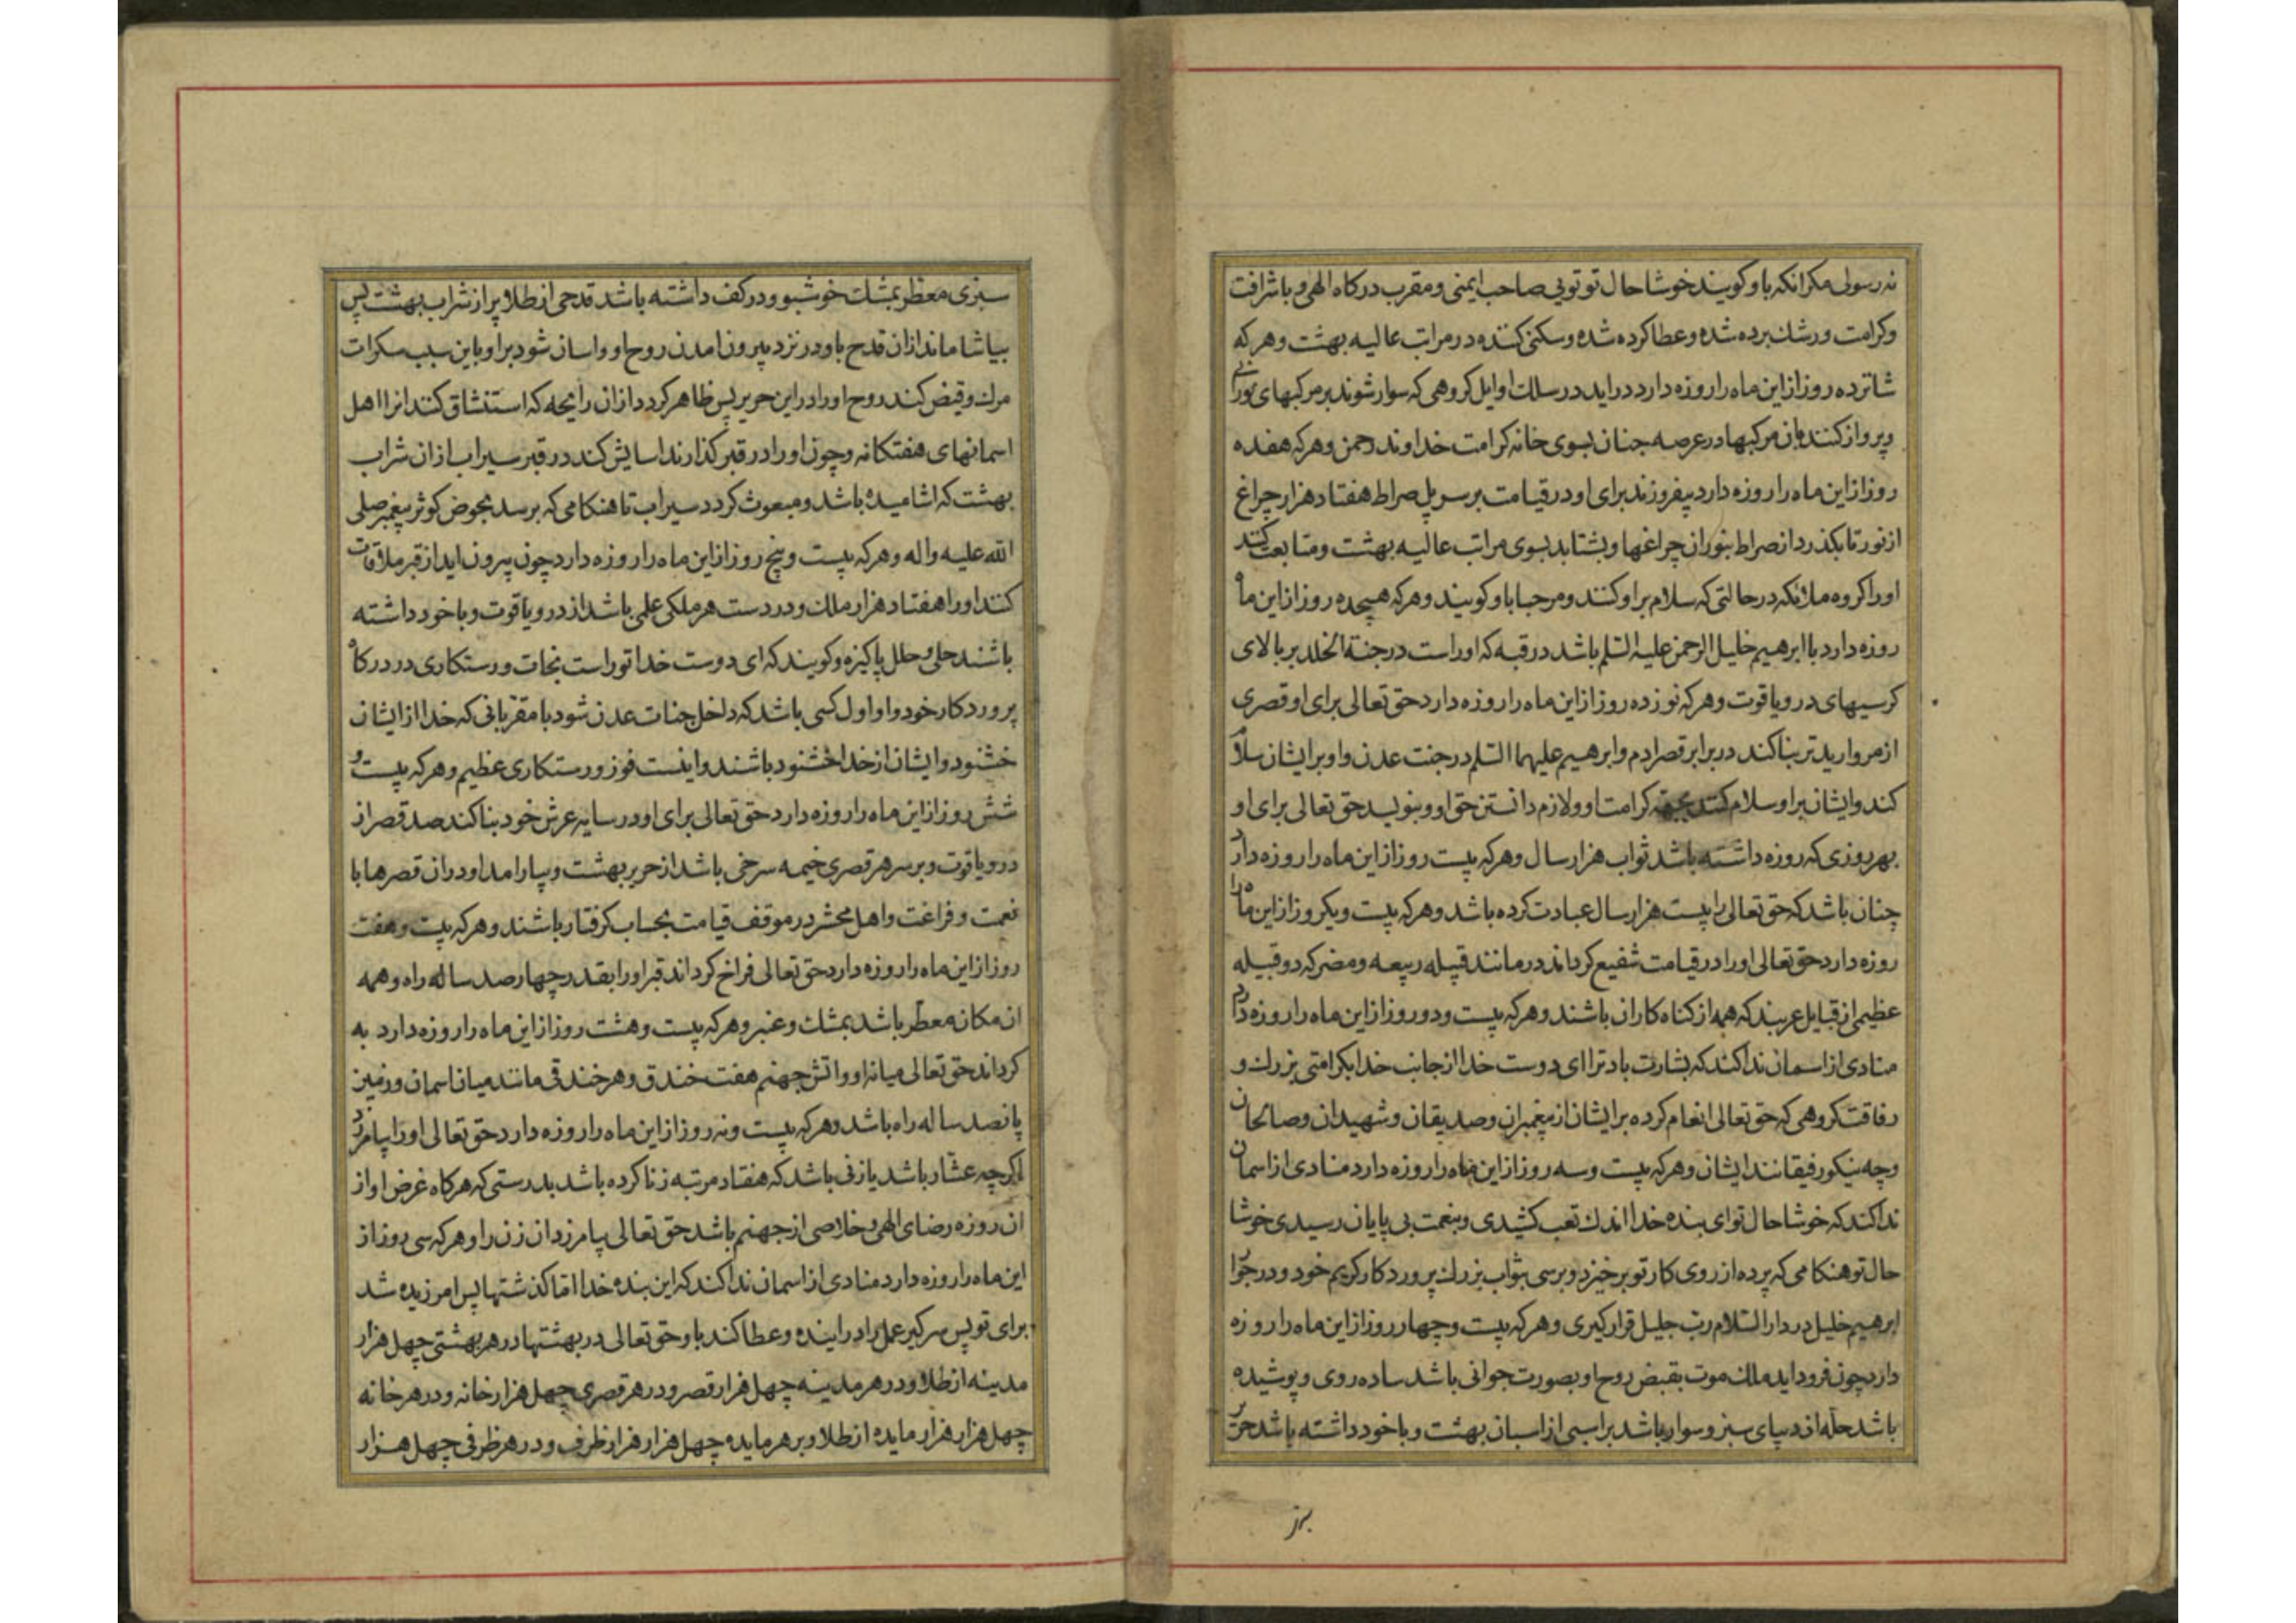 نه رسولی مکر انکه باو کویند خوشا حال تو تویی صاحب ایمنی و مقرب درکاه الهی و با شرافت
وکرامت ورشک برده شده وعطا کرده شده وسکنی کننده در مراتب عالیه بهشت وهر که
شانزده روز از این ماه را روزه دارد دراید در سلک اوایل کروهی که سوار شوند بر مرکبهای نورانی
وپرواز کنند بان مرکبها در عرصه جنان بسوی خانه کرامت خداوند رحمن وهر که هفده
روز از این ماه را روزه دارد بیفروزند برای او در قیامت بر سر پل صراط هفتاد هزار چراغ
از نور تا بکذرد از صراط بنور ان چراغها و بشتابد بسوی مراتب عالیه بهشت ومتابعت کنند
اورا کروه ملائکه در حالتی که سلام بر او کنند و مرحبا باو کویند وهر که هیجده روز از این ماه
روزه دارد با ابرهیم خلیل الرحمن علیه السلم باشد در قبه که اوراست در جنة الخلد بر بالای
کرسیهای در و یاقوت وهر که نوزده روز از این ماه را روزه دارد حق تعالی برای او قصری
از مروارید تر بنا کند در برابر قصر ادم و ابرهیم علیهما السلم در جنت عدن و او بر ایشان سلام
کند وایشان بر او سلام کنند بجهة کرامت او و لازم دانستن حق او و بنویسد حق تعالی برای او
بهر روزی که روزه داشته باشد ثواب هزار سال وهر که بیست روز از این ماه را روزه دارد
چنان باشد که حق تعالی را بیست هزار سال عبادت کرده باشد وهر که بیست و یکروز از این ماه را
روزه دارد حق تعالی اورا در قیامت شفیع کرداند در مانند قبیله ربیعه و مضر که دو قبیله
عظیمی از قبایل عربند که همه از کناه کاران باشند وهر که بیست و دو روز از این ماه را روزه دارد
منادی از اسمان ندا کند که بشارت باد ترا ای دوست خدا از جانب خدا بکرامتی بزرک و
رفاقت کروهی که حق تعالی انعام کرده بر ایشان از پیغمبران و صدیقان و شهیدان و صالحان
وچه نیکو رفیقانند ایشان وهر که بیست وسه روز از این ماه را روزه دارد منادی از اسمان
ندا کند که خوشا حال تو ای بنده خدا اندک تعب کشیدی و بنعمت بی پایان رسیدی خوشا
حال تو هنکامی که پرده از روی کار تو برخیزد و برسی بثواب بزرک پروردکار کریم خود و در جوار
ابرهیم خلیل در دار السلام رب جلیل قرار کیری وهر که بیست وچهار روز از این ماه را روزه
دارد چون فرود اید ملک موت بقبض روح او بصورت جوانی باشد ساده روی و پوشیده
باشد حله از دیبای سبز و سوار باشد بر اسبی از اسبان بهشت و با خود داشته باشد حریر
سبزی معطر بمشک خوشبو و در کف داشته باشد قدحی از طلا پر از شراب بهشت پس
بیاشاماند از ان قدح باو در نزد بیرون امدن روح او و اسان شود بر او باین سبب سکرات
مرک و قبض کند روح اورا در این حریر پس ظاهر کردد از ان رایحه که استنشاق کنند انرا اهل
اسمانهای هفتکانه وچون اورا در قبر کذارند اسایش کند در قبر سیراب از ان شراب
بهشت که اشامیده باشد و مبعوث کردد سیراب تا هنکامی که برسد بحوض کوثر پیغمبر صلی
الله علیه واله وهر که بیست و پنج روز از این ماه را روزه دارد چون بیرون اید از قبر ملاقات
کنند اورا هفتاد هزار ملک و در دست هر ملکی علمی باشد از در و یاقوت و با خود داشته
باشند حلی و حلل پاکیزه و کویند که ای دوست خدا توراست نجات و رستکاری در درکاه
پروردکار خود و او اول کسی باشد که داخل جنات عدن شود با مقربانی که خدا از ایشان
خشنود وایشان از خدا خشنود باشند و اینست فوز و رستکاری عظیم وهر که بیست و
شش روز از این ماه را روزه دارد حق تعالی برای او در سایه عرش خود بنا کند صد قصر از
در و یاقوت و بر سر هر قصری خیمه سرخی باشد از حریر بهشت و بیارامد او در ان قصرها با
نعمت و فراغت و اهل محشر در موقف قیامت بحساب کرفتار باشند وهر که بیست و هفت
روز از این ماه را روزه دارد حق تعالی فراخ کرداند قبر اورا بقدر چهار صد ساله راه و همه
ان مکان معطر باشد بمشک و عنبر وهر که بیست و هشت روز از این ماه را روزه دارد به
کرداند حق تعالی میانه او و اتش جهنم هفت خندق و هر خندقی مانند میان اسمان و زمین
پانصد ساله راه باشد وهر که بیست و نه روز از این ماه را روزه دارد حق تعالی اورا بیامرزد
اکرچه عشار باشد یا زنی باشد که هفتاد مرتبه زنا کرده باشد بدرستی که هر کاه غرض او از
ان روزه رضای الهی و خلاصی از جهنم باشد حق تعالی بیامرزد ان زن را وهر که سی روز از
این ماه را روزه دارد منادی از اسمان ندا کند که این بنده خدا اما کذشتها پس امرزیده شد
برای تو پس سر کیر عمل را در اینده و عطا کند باو حق تعالی در بهشتها در هر بهشتی چهل هزار
مدینه از طلا و در هر مدینه چهل هزار قصر و در هر قصری چهل هزار خانه و در هر خانه
چهل هزار هزار مایده از طلا و بر هر مایده چهل هزار هزار ظرف و در هر ظرفی چهل هزار